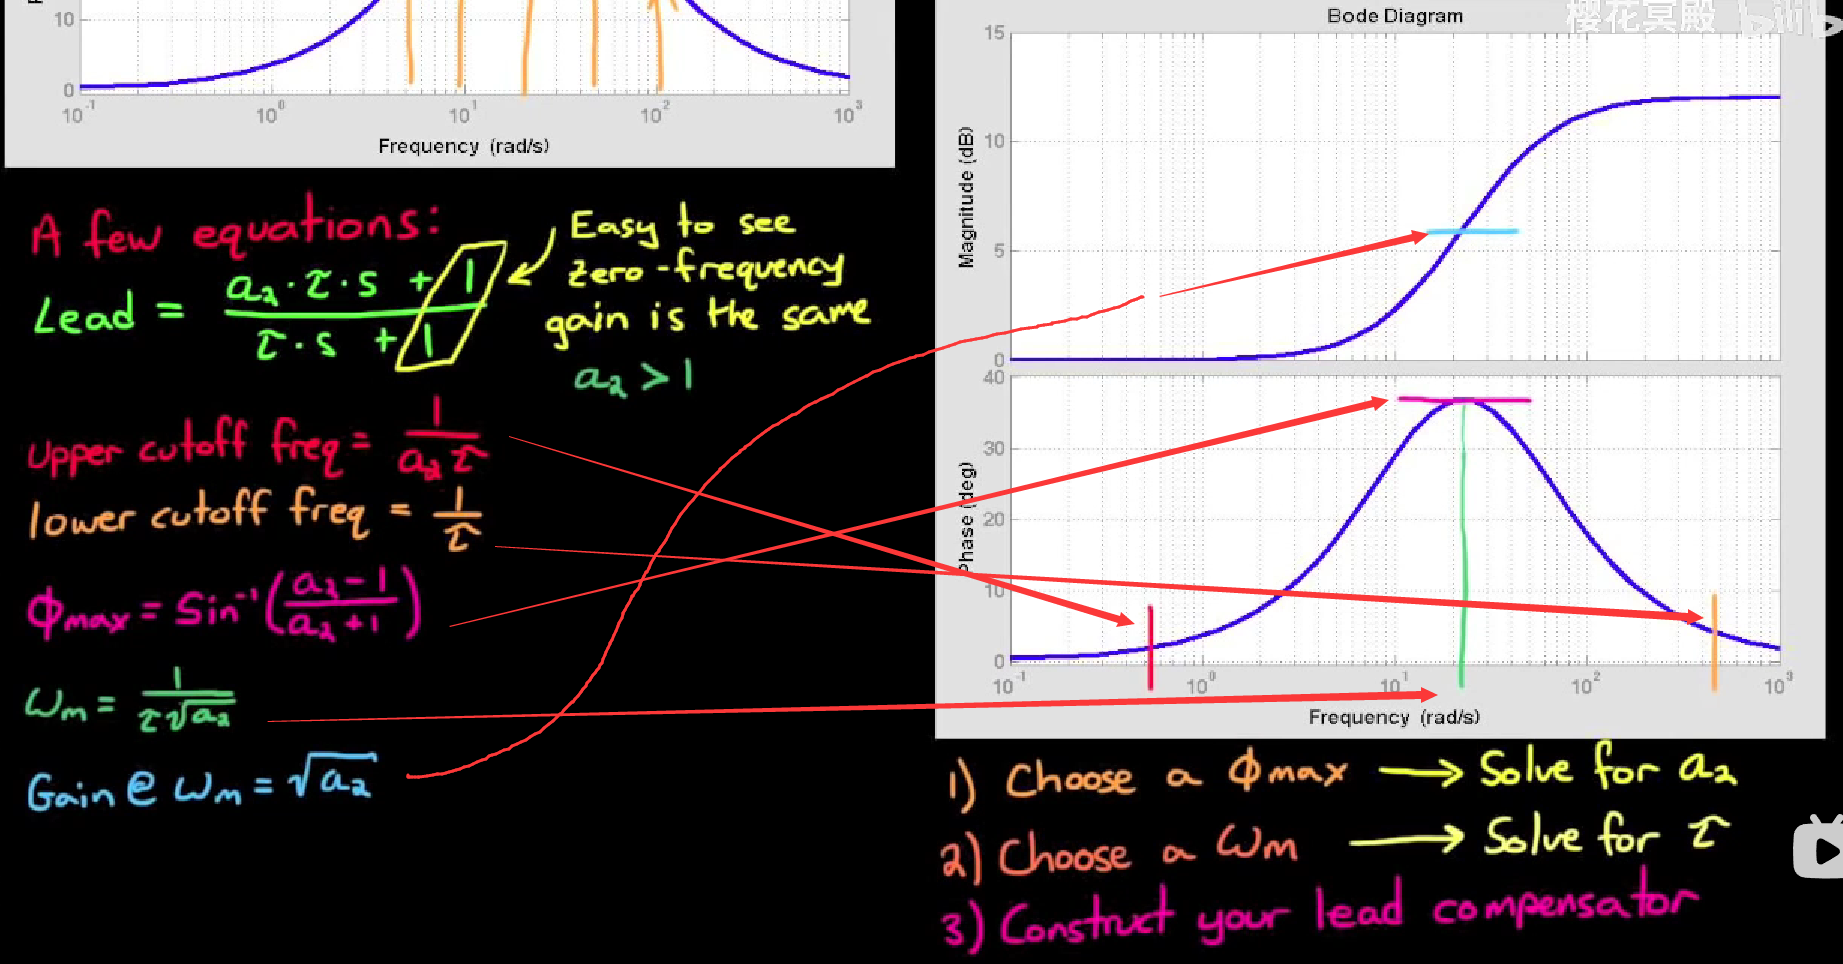 10
0
10⁻¹
10⁰
10¹
10²
10³
Frequency (rad/s)
A few equations:
Lead = (a₂·τ·s + 1) / (τ·s + 1)
Easy to see
zero-frequency
gain is the same
a₂ > 1
Upper cutoff freq = 1 / (a₂ τ)
lower cutoff freq = 1 / τ
Φmax = Sin⁻¹((a₂-1) / (a₂+1))
ωm = 1 / (τ√a₂)
Gain @ ωm = √a₂
Bode Diagram
樱花冥殿 bilibili
15
10
5
0
Magnitude (dB)
40
30
20
10
0
Phase (deg)
10⁻¹
10⁰
10¹
10²
10³
Frequency (rad/s)
1) Choose a Φmax → Solve for a₂
2) Choose a ωm → Solve for τ
3) Construct your lead compensator